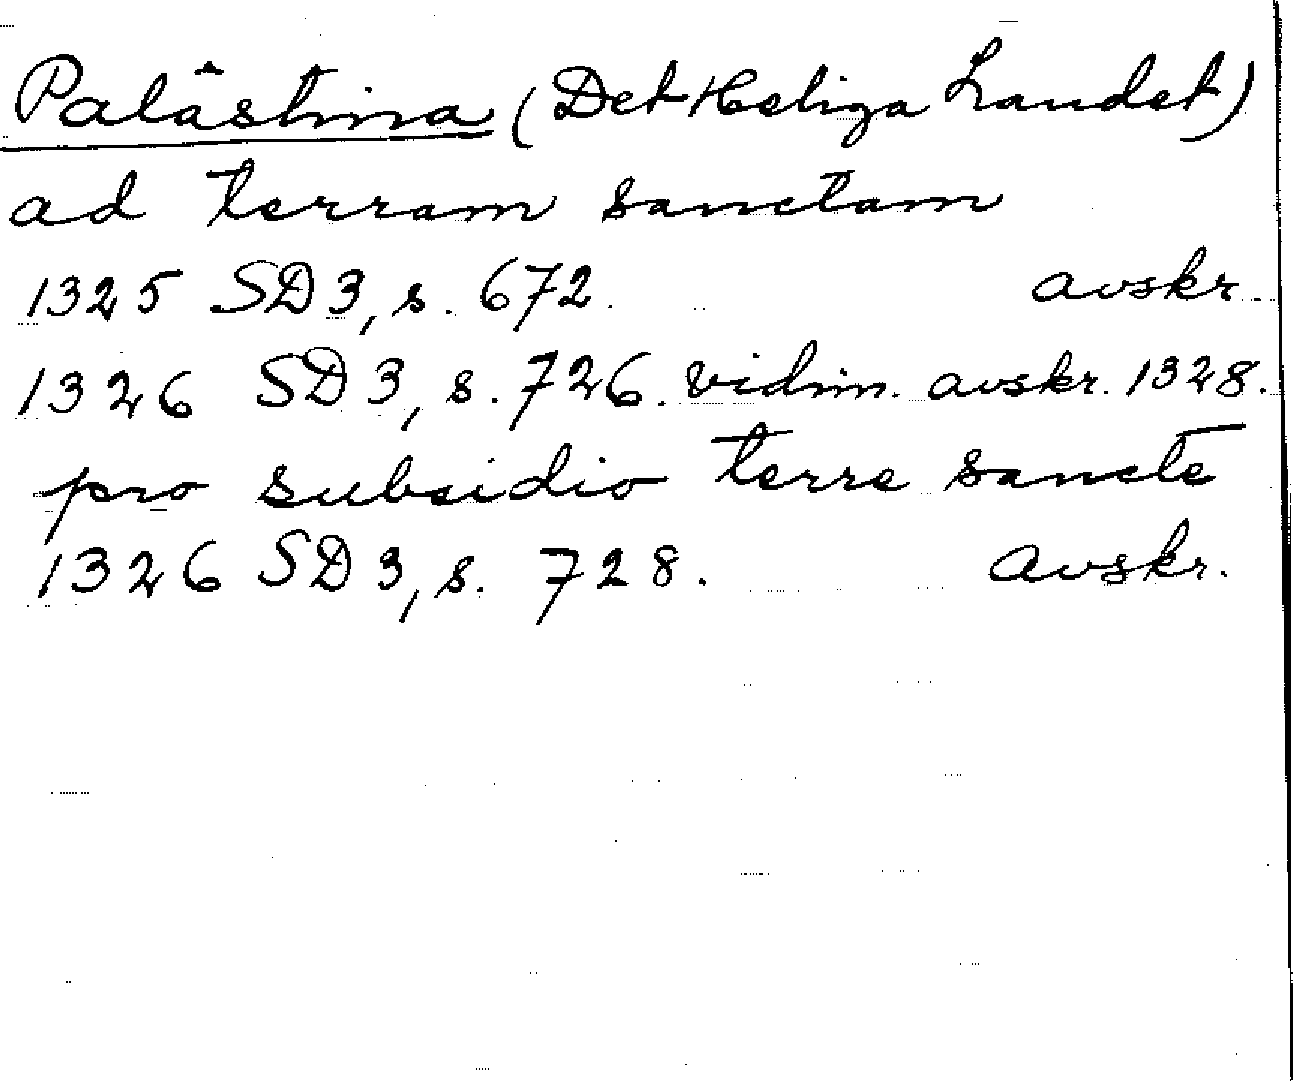 Palästina (Det Heliga Landet)
ad terram sanctam
1325 SD 3, s. 672. avskr.
1326 SD 3, s. 726. vidim. avskr. 1328.
pro subsidio terre sancte
1326 SD 3, s. 728. avskr.